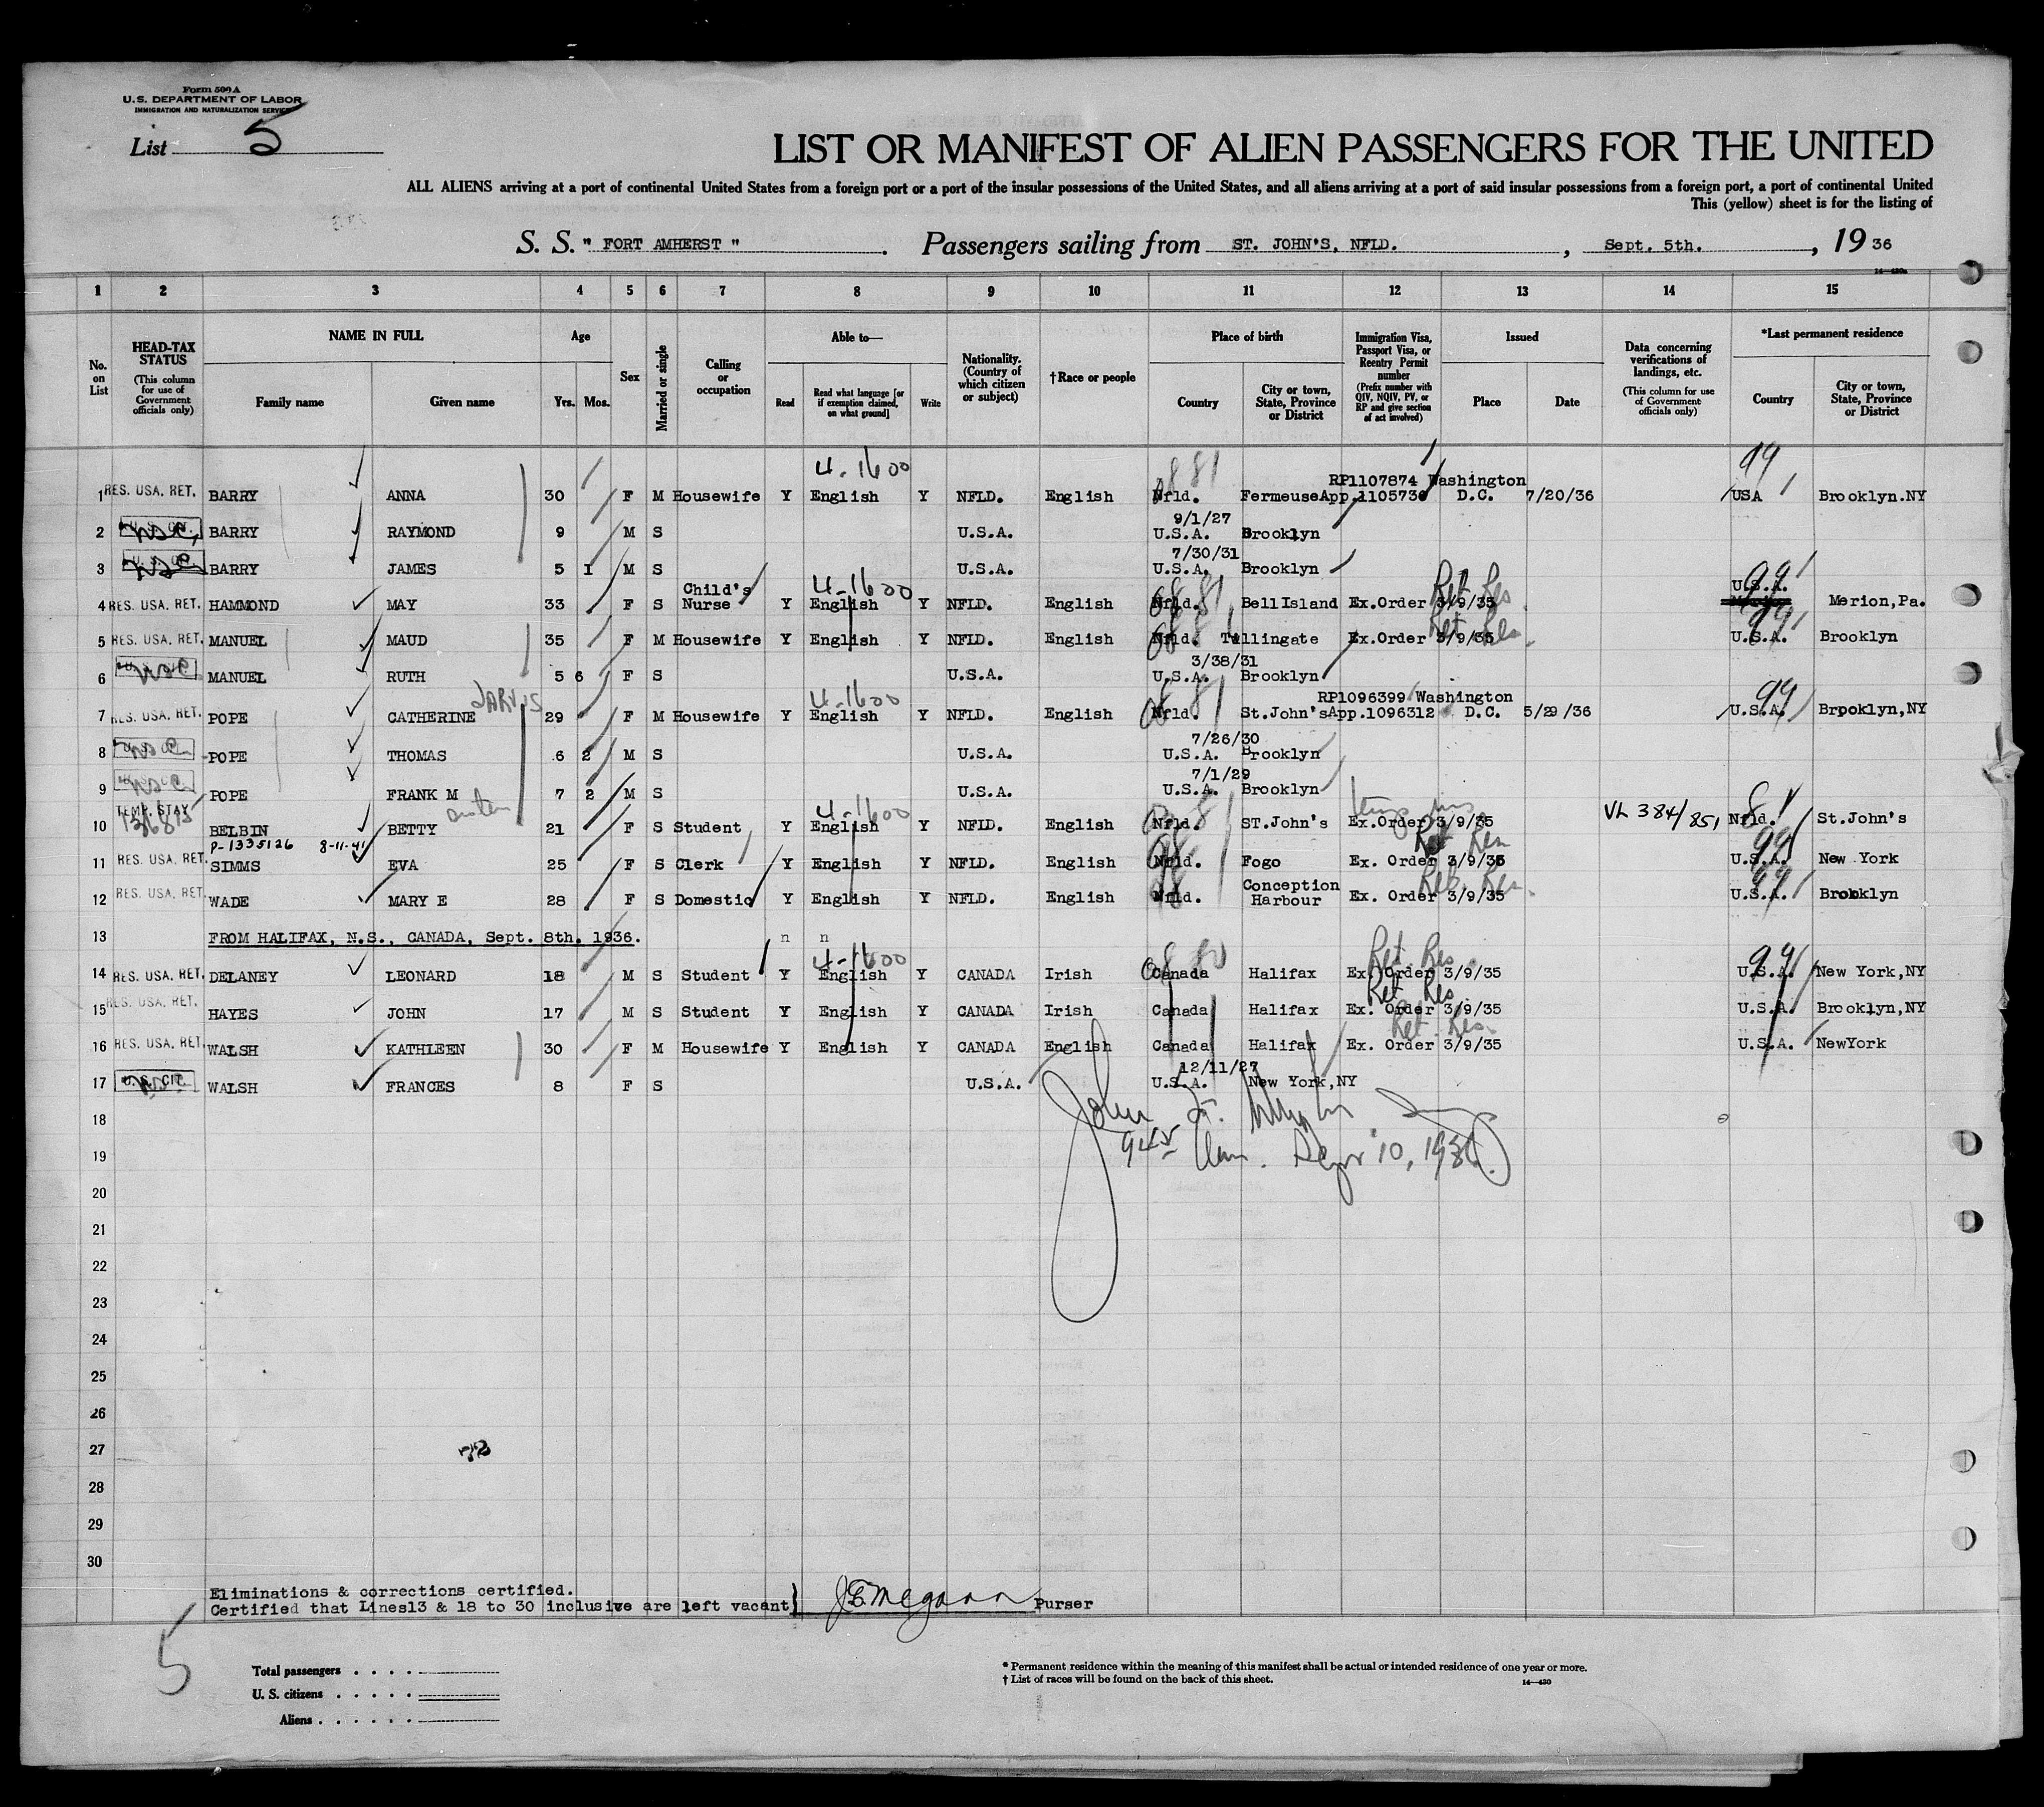 Form 500 A
U. S. DEPARTMENT OF LABOR
IMMIGRATION AND NATURALIZATION SERVICE
List 5
LIST OR MANIFEST OF ALIEN PASSENGERS FOR THE UNITED
ALL ALIENS arriving at a port of continental United States from a foreign port or a port of the insular possessions of the United States, and all aliens arriving at a port of said insular possessions from a foreign port, a port of continental United
This (yellow) sheet is for the listing of
S. S. " FORT AMHERST " . Passengers sailing from ST. JOHN'S, NFLD. , Sept. 5th. , 19 36
1 2 3 4 5 6 7 8 9 10 11 12 13 14 15
No. on List
HEAD-TAX STATUS (This column for use of Government officials only)
NAME IN FULL
Family name Given name
Age
Yrs. Mos.
Sex
Married or single
Calling or occupation
Able to—
Read Read what language [or if exemption claimed, on what ground] Write
Nationality. (Country of which citizen or subject)
†Race or people
Place of birth
Country City or town, State, Province or District
Immigration Visa, Passport Visa, or Reentry Permit number (Prefix number with QIV, NQIV, PV, or RP and give section of act involved)
Issued
Place Date
Data concerning verifications of landings, etc. (This column for use of Government officials only)
*Last permanent residence
Country City or town, State, Province or District
4-1600 881 RP1107874 Washington 99
1 RES. USA. RET. BARRY ANNA 30 F M Housewife Y English Y NFLD. English Nfld. Fermeuse App.1105736 D.C. 7/20/36 USA Brooklyn.NY
9/1/27
2 BARRY RAYMOND 9 M S U.S.A. U.S.A. Brooklyn
7/30/31
3 BARRY JAMES 5 1 M S U.S.A. U.S.A. Brooklyn
4-1600 Ret Res 99
4 RES. USA. RET. HAMMOND MAY 33 F S Child's Nurse Y English Y NFLD. English Nfld. Bell Island Ex.Order 3/9/35 U.S.A. Merion,Pa.
Ret Res 99
5 RES. USA. RET. MANUEL MAUD 35 F M Housewife Y English Y NFLD. English Nfld. Twillingate Ex.Order 3/9/35 U.S.A. Brooklyn
3/38/31
6 MANUEL RUTH 5 6 F S U.S.A. U.S.A. Brooklyn
JARVIS 4-1600 RP1096399 Washington 99
7 RES. USA. RET. POPE CATHERINE 29 F M Housewife Y English Y NFLD. English Nfld. St.John's App.1096312 D.C. 5/29/36 U.S.A. Brooklyn,NY
7/26/30
8 POPE THOMAS 6 2 M S U.S.A. U.S.A. Brooklyn
7/1/29
9 POPE FRANK M 7 2 M S U.S.A. U.S.A. Brooklyn
TEMP. STAY 4-1600 81
10 BELBIN BETTY 21 F S Student Y English Y NFLD. English Nfld. ST.John's Ex.Order 3/9/35 VL 384/851 Nfld. St.John's
P-1335126 8-11-41 Ret Res 99
11 RES. USA. RET. SIMMS EVA 25 F S Clerk Y English Y NFLD. English Nfld. Fogo Ex. Order 3/9/35 U.S.A. New York
Ret. Res. 99
12 RES. USA. RET. WADE MARY E 28 F S Domestic Y English Y NFLD. English Nfld. Conception Harbour Ex. Order 3/9/35 U.S.A. Brooklyn
13 FROM HALIFAX, N.S., CANADA, Sept. 8th. 1936. n n
4-1600 80 Ret. Res 99
14 RES. USA. RET. DELANEY LEONARD 18 M S Student Y English Y CANADA Irish Canada Halifax Ex. Order 3/9/35 U.S.A. New York,NY
Ret Res
15 RES. USA. RET. HAYES JOHN 17 M S Student Y English Y CANADA Irish Canada Halifax Ex. Order 3/9/35 U.S.A. Brooklyn,NY
Ret. Res.
16 RES. USA. RET. WALSH KATHLEEN 30 F M Housewife Y English Y CANADA English Canada Halifax Ex. Order 3/9/35 U.S.A. NewYork
12/11/27
17 U.S. CIT. WALSH FRANCES 8 F S U.S.A. U.S.A. New York,NY
18 John
19 945 Sept 10, 1936
20
21
22
23
24
25
26
27
28
29
30
Eliminations & corrections certified.
Certified that Lines13 & 18 to 30 inclusive are left vacant J.E. Megann Purser
5
Total passengers . . . .
U. S. citizens . . . . .
Aliens . . . . . .
* Permanent residence within the meaning of this manifest shall be actual or intended residence of one year or more.
† List of races will be found on the back of this sheet.
14—430